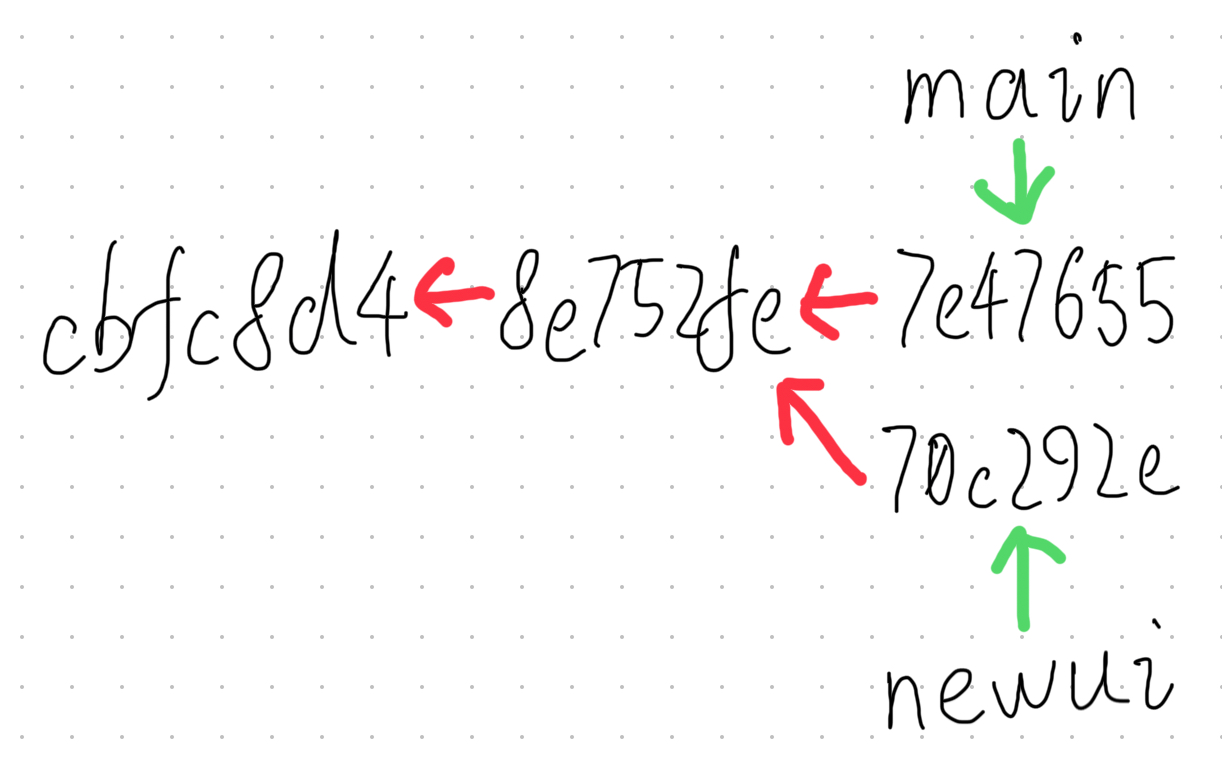 main
cbfc8d4 8e752fe 7e47655
70c292e
newui